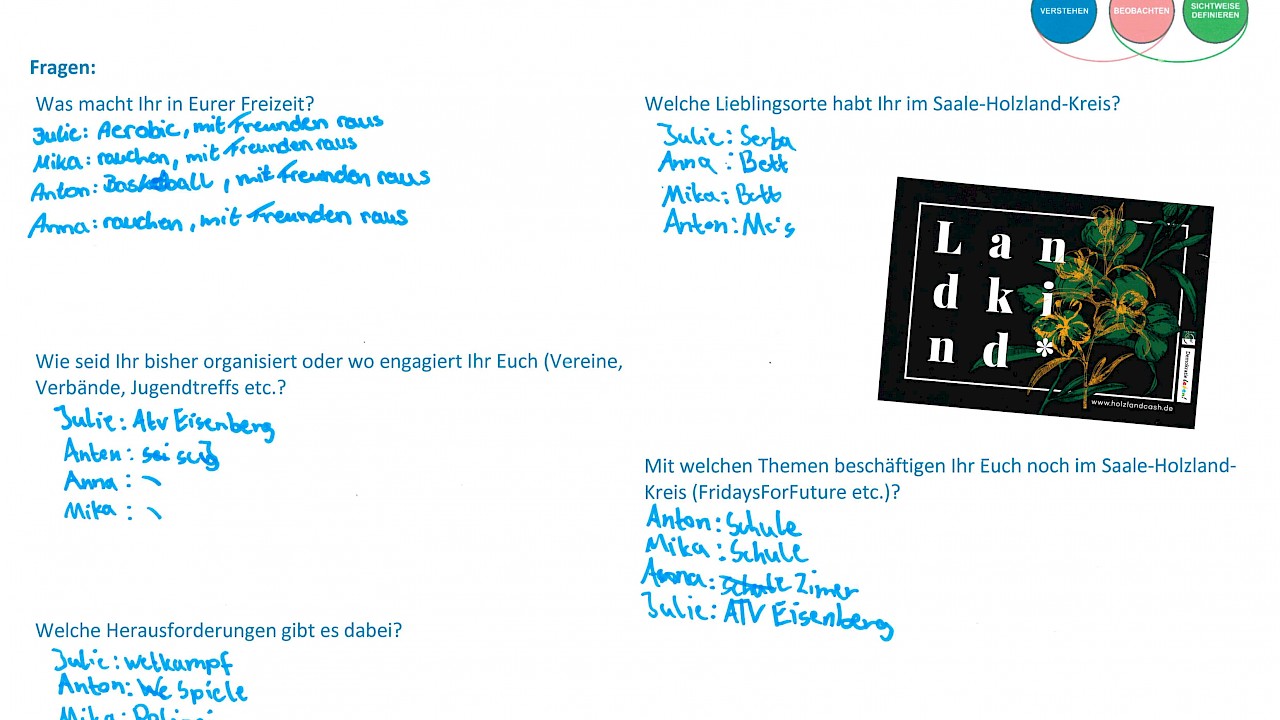 VERSTEHEN
BEOBACHTEN
SICHTWEISE
DEFINIEREN
Fragen:
Was macht Ihr in Eurer Freizeit?
Julie: Aerobic, mit Freunden raus
Mika: rauchen, mit Freunden raus
Anton: Basketball, mit Freunden raus
Anna: rauchen, mit Freunden raus
Wie seid Ihr bisher organisiert oder wo engagiert Ihr Euch (Vereine,
Verbände, Jugendtreffs etc.?
Julie: Atv Eisenberg
Anton:
Anna: \
Mika: \
Welche Herausforderungen gibt es dabei?
Julie: wetkampf
Anton: We Spiele
Mika: Polizei
Welche Lieblingsorte habt Ihr im Saale-Holzland-Kreis?
Julie: Serba
Anna: Bett
Mika: Bett
Anton: Mc's
Lan
dki
nd*
www.holzlandcash.de
Demokratie leben!
Mit welchen Themen beschäftigen Ihr Euch noch im Saale-Holzland-
Kreis (FridaysForFuture etc.)?
Anton: Schule
Mika: Schule
Anna: Zimer
Julie: ATV Eisenberg